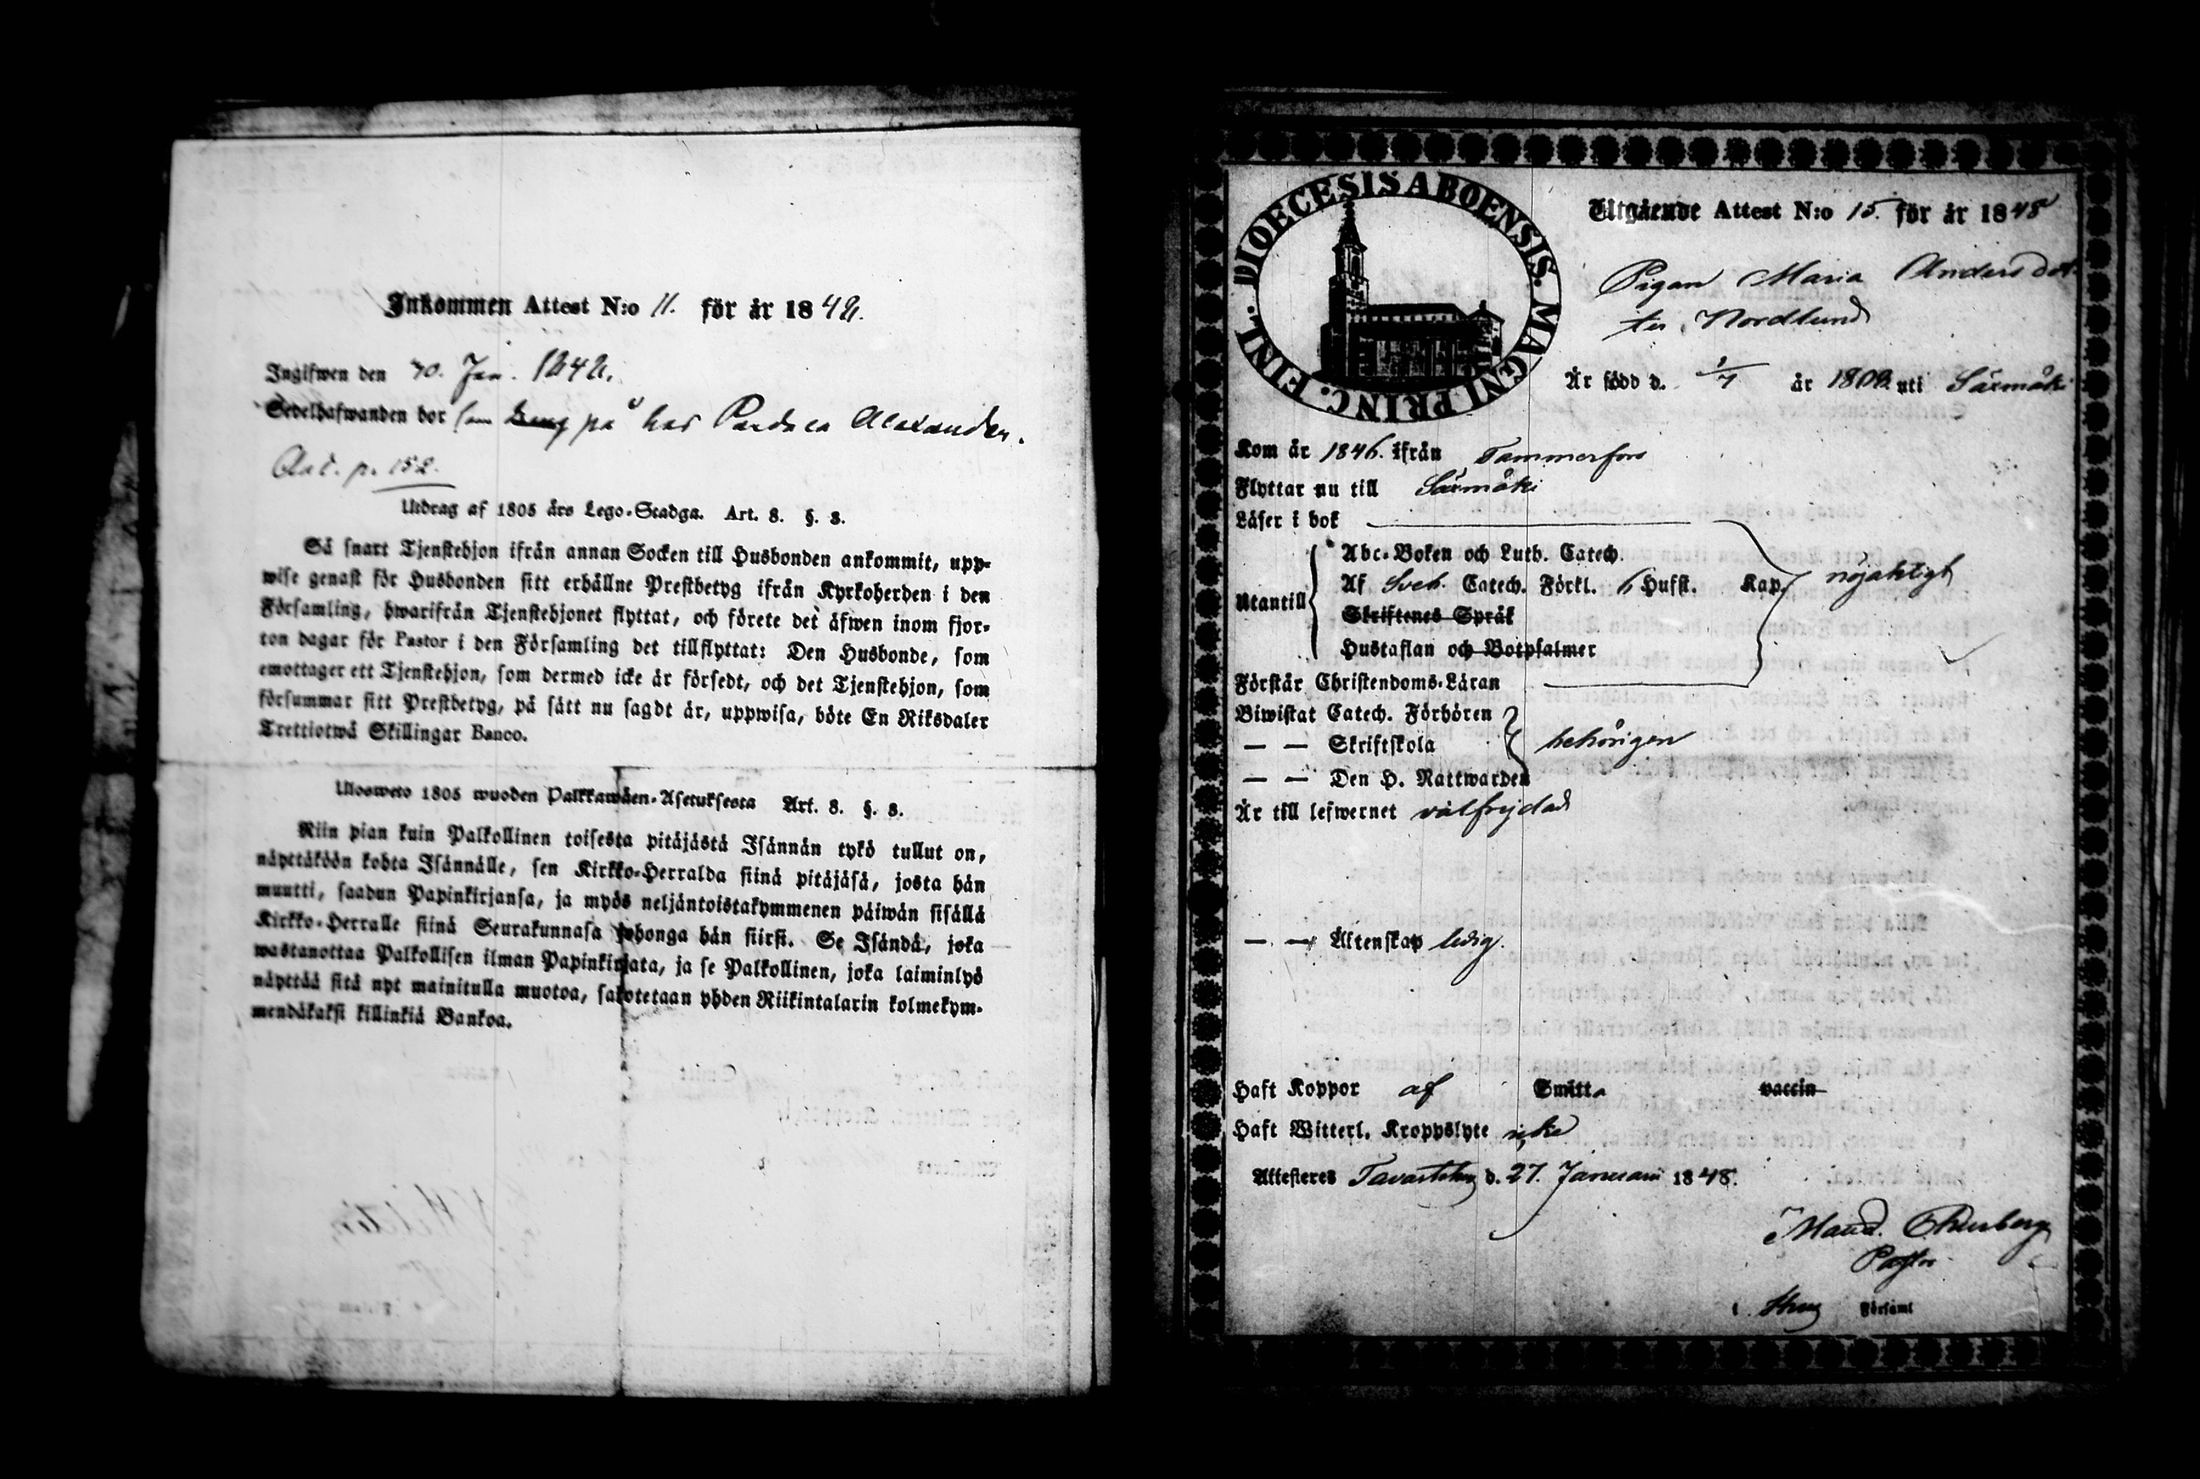 Inkommen Attest N:o 11. för år 1848.
Ingifwen den 30. Jan. 1848.
Sedelhafwanden bor på hos Alexander.
p. 152.
Utdrag af 1805 års Lego-Stadga. Art. 8. §. 3.
Så snart Tjenstehjon ifrån annan Socken till Husbonden ankommit, upp-
wise genast för Husbonden sitt erhållne Prestbetyg ifrån Kyrkoherden i den
Församling, hwarifrån Tjenstehjonet flyttat, och förete det äfwen inom fjor-
ton dagar för Pastor i den Församling det tillflyttat: Den Husbonde, som
emottager ett Tjenstehjon, som dermed icke är försedt, och det Tjenstehjon, som
försummar sitt Prestbetyg, på sätt nu sagdt är, uppwisa, böte En Riksdaler
Trettiotwå Skillingar Banco.
Ulosweto 1805 wuoden Palkkawäen-Asetuksesta Art. 8. §. 3.
Niin pian kuin Palkollinen toisesta pitäjästä Isännän tykö tullut on,
näyttäköön kohta Isännälle, sen Kirkko-Herralda siinä pitäjäsä, josta hän
muutti, saadun Papinkirjansa, ja myös neljäntoistakymmenen päiwän sisällä
Kirkko-Herralle siinä Seurakunnasa johonga hän siirsi. Se Isändä, joka
wastanottaa Palkollisen ilman Papinkirjata, ja se Palkollinen, joka laiminlyö
näyttää sitä nyt mainitulla muotoa, sakotetaan yhden Riikintalarin kolmekym-
mendäkaksi killinkiä Bankoa.
DIOECESIS ABOENSIS. MAGNI PRINC. FINL.
Utgående Attest N:o 15. för år 1848
Pigan Maria Andersdot-
ter Nordlund
Är född d. 1/7 år 1809. uti Säxmäki
Kom år 1846. ifrån Tammerfors
Flyttar nu till Säxmäki
Läser i bok
Abc-Boken och Luth. Catech.
Utantill Af Sveb. Catech. Förkl. 6 Hufst. Kap. nöjaktigt
Skriftenes Språk
Hustaflan och Botpsalmer
Förstår Christendoms-Läran
Biwistat Catech. Förhören
— — Skriftskola behörigen
— — Den H. Nattwarden
Är till lefwernet välfrejdad
— — Äktenskap ledig.
Haft Koppor af Smitta vaccin
Haft Witterl. Kroppslyte icke
Attesteres Tavastehus d. 27. Januari 1848.
Pastor
i Församl